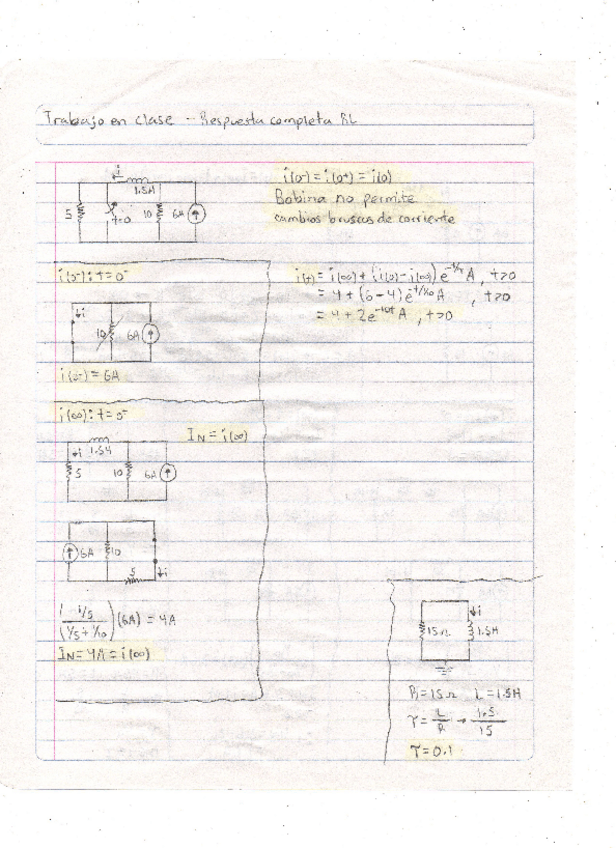 Trabajo en clase - Respuesta completa RL
i
1.5H
5
t=0
10
6A
i(0-) = i(0+) = i(0)
Bobina no permite
cambios bruscos de corriente
i(0-): t=0-
↓i
10
6A
i(0-) = 6A
i(t) = i(∞) + (i(0) - i(∞)) e^-t/τ A, t>0
= 4 + (6 - 4) e^-t/1/10 A, t>0
= 4 + 2e^-10t A, t>0
i(∞): t=0-
IN = i(∞)
1.5H
↓i
5
10
6A
6A
10
5
↓i
(1/5 / (1/5 + 1/10)) (6A) = 4A
IN = 4A = i(∞)
↓i
15Ω
1.5H
R=15Ω L=1.5H
τ = L/R → 1.5/15
τ = 0.1